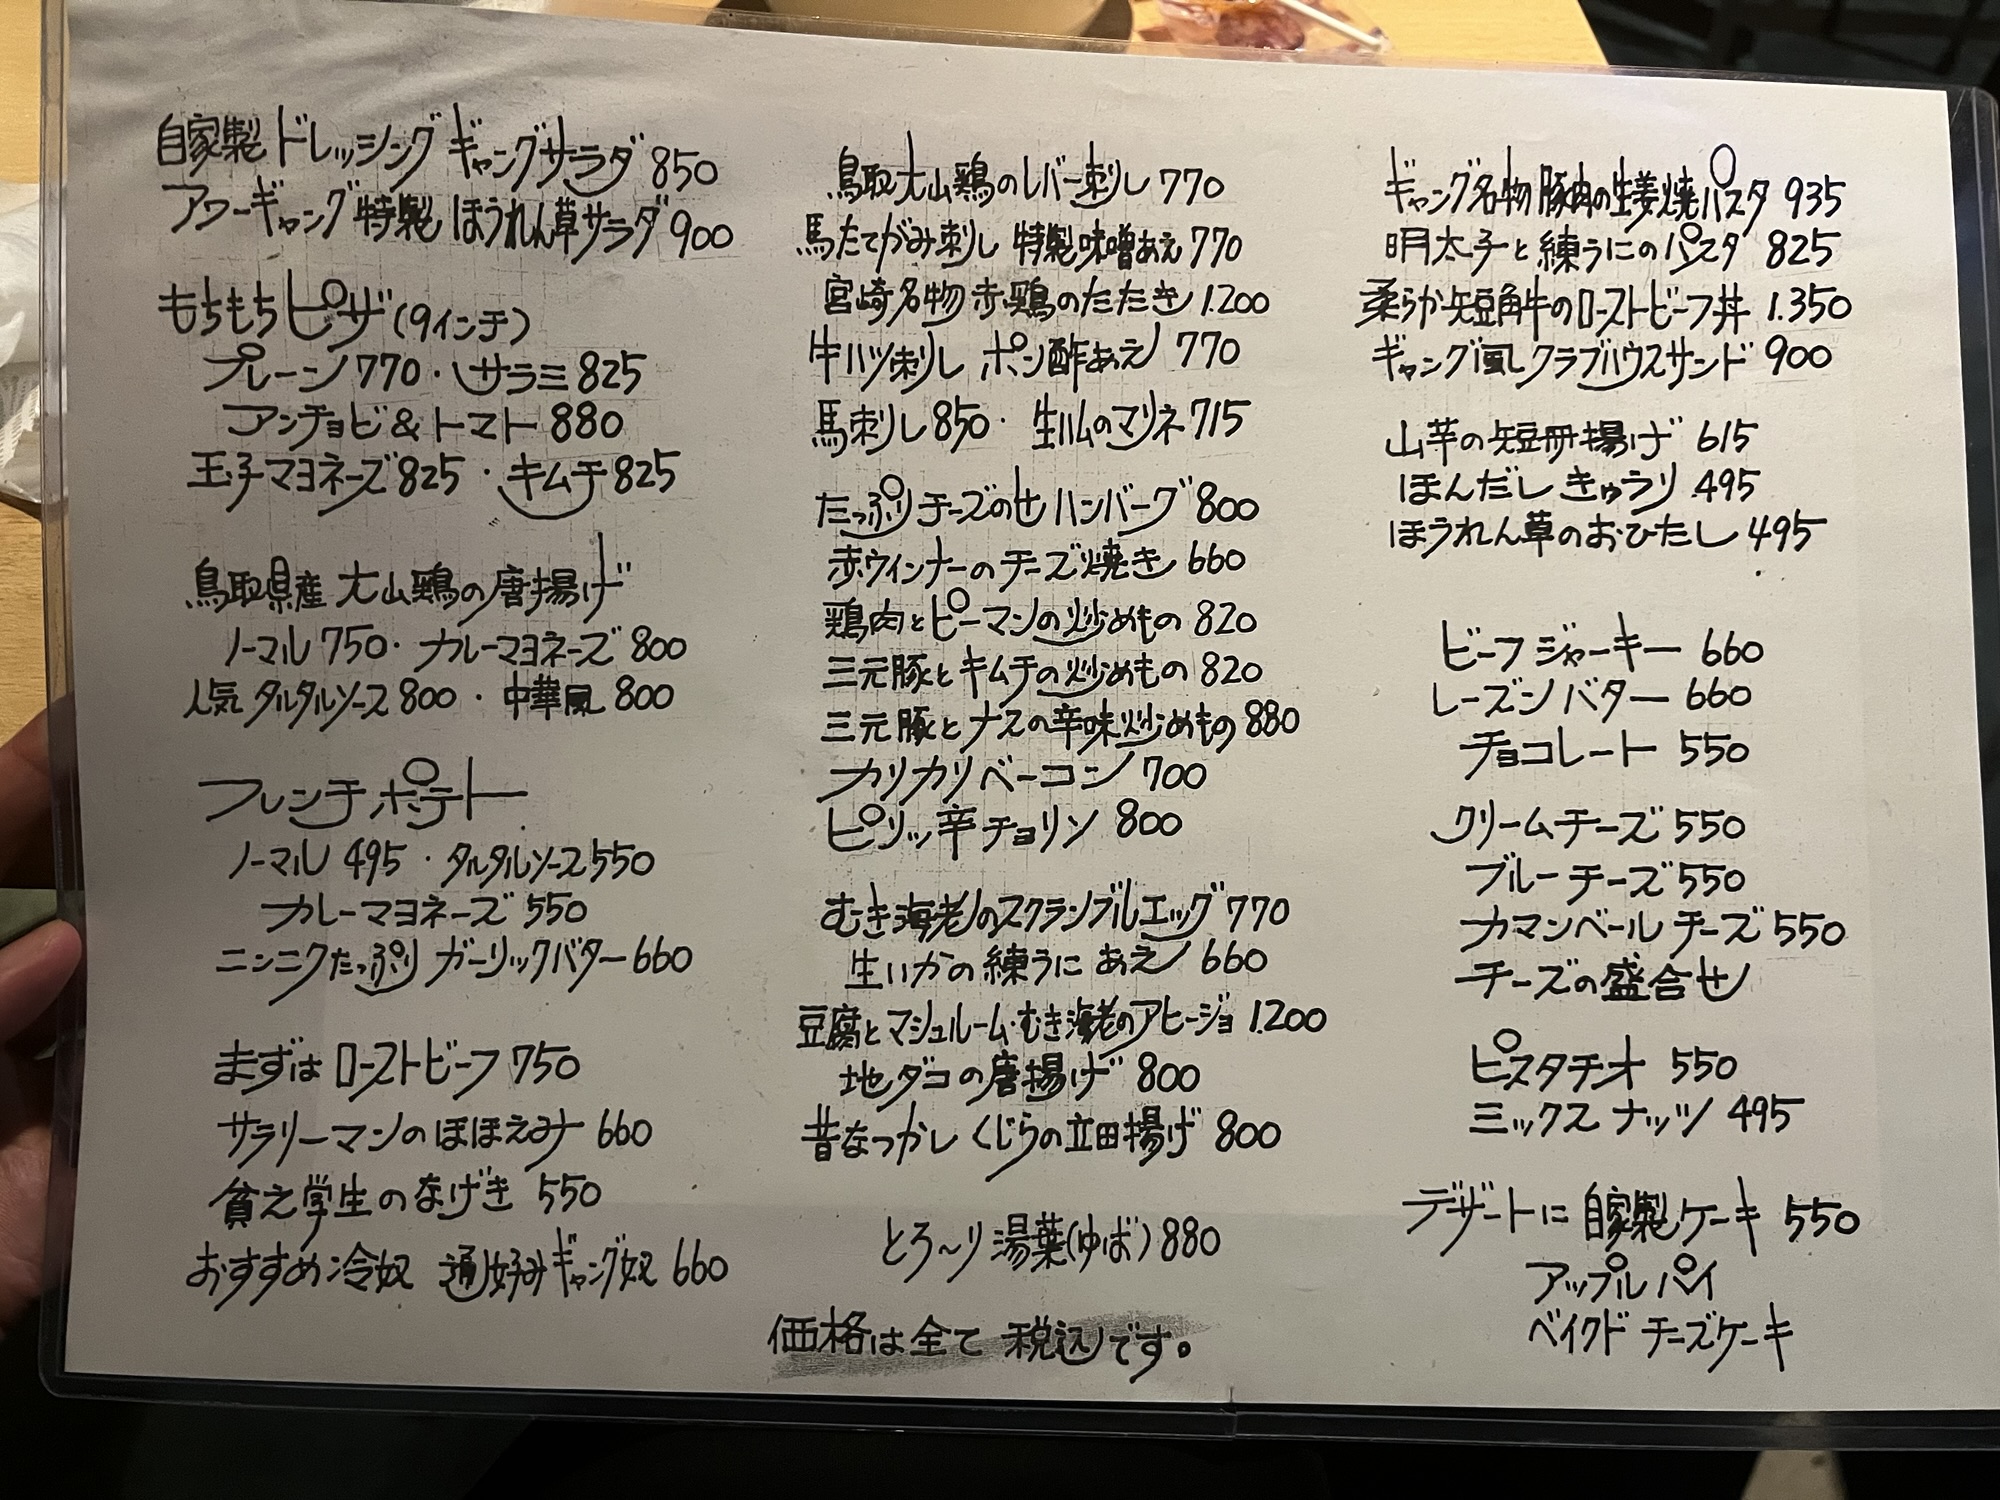 自家製 ドレッシング ギャングサラダ 850
アワーギャング 特製 ほうれん草サラダ 900
もちもちピザ(9インチ)
プレーン 770・サラミ 825
アンチョビ&トマト 880
玉子マヨネーズ 825・キムチ 825
鳥取県産 大山鶏の唐揚げ
ノーマル 750・カレーマヨネーズ 800
人気 タルタルソース 800・中華風 800
フレンチポテト
ノーマル 495・タルタルソース 550
カレーマヨネーズ 550
ニンニクたっぷり ガーリックバター 660
まずは ローストビーフ 750
サラリーマンのほほえみ 660
貧乏学生のなげき 550
おすすめ冷奴 通好みギャング奴 660
鳥取大山鶏のレバー刺し 770
馬たてがみ刺し 特製味噌あえ 770
宮崎名物 赤鶏のたたき 1.200
牛ハツ刺し ポン酢あえ 770
馬刺し 850・生ハムのマリネ 715
たっぷりチーズのせ ハンバーグ 800
赤ウィンナーの チーズ焼き 660
鶏肉とピーマンの炒めもの 820
三元豚とキムチの炒めもの 820
三元豚とナスの辛味炒めもの 880
カリカリベーコン 700
ピリッ辛チョリソ 800
むき海老のスクランブルエッグ 770
生いかの練うに あえ 660
豆腐とマシュルーム・むき海老のアヒージョ 1.200
地ダコの唐揚げ 800
昔なつかし くじらの立田揚げ 800
とろ〜り 湯葉(ゆば) 880
価格は全て 税込です。
ギャング名物 豚肉の生姜焼パスタ 935
明太子と練うにのパスタ 825
柔らか短角牛のローストビーフ丼 1.350
ギャング風クラブハウスサンド 900
山芋の短冊揚げ 615
ほんだし きゅうり 495
ほうれん草のおひたし 495
ビーフジャーキー 660
レーズンバター 660
チョコレート 550
クリームチーズ 550
ブルーチーズ 550
カマンベールチーズ 550
チーズの盛合せ
ピスタチオ 550
ミックス ナッツ 495
デザートに 自家製ケーキ 550
アップルパイ
ベイクド チーズケーキ